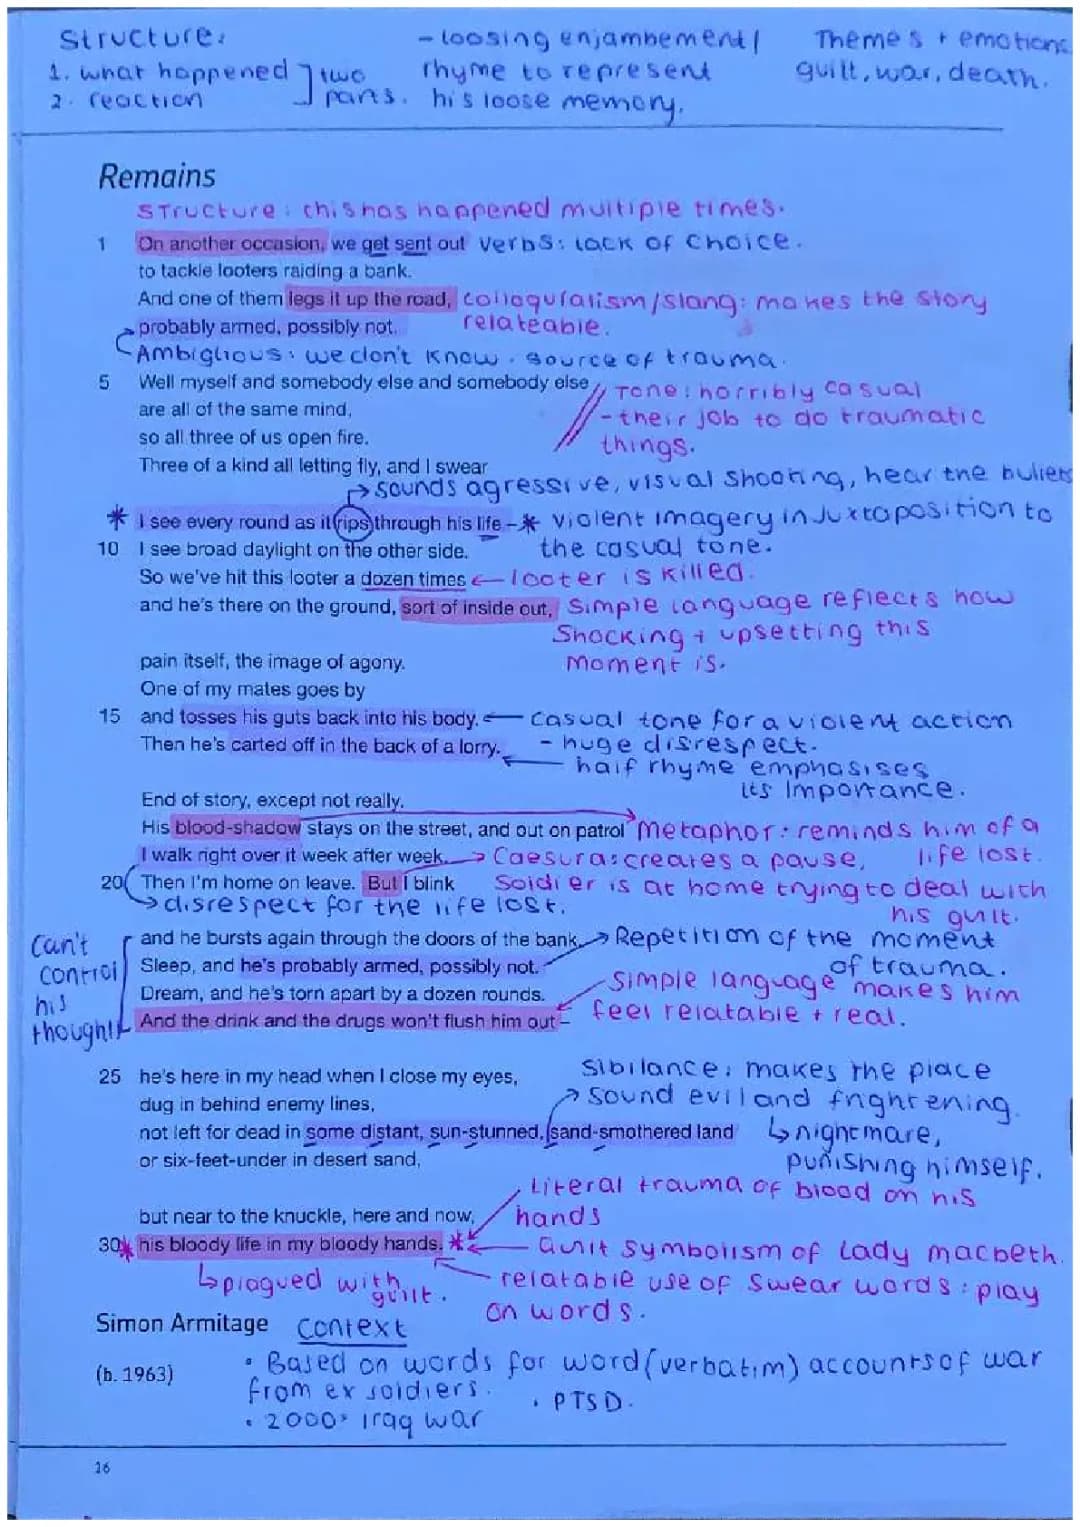 Structure:
1. what happened
2. reaction
two parts.
- loosing enjambement/
rhyme to represent
his loose memory.
Themes + emotions
guilt, war, death.
Remains
Structure: this has happened multiple times.
1 On another occasion, we get sent out verbs: lack of choice.
to tackle looters raiding a bank.
And one of them legs it up the road, colloquialism/slang: makes the story
probably armed, possibly not. relateable.
Ambiglious: we don't know. source of trauma.
5 Well myself and somebody else and somebody else Tone: horribly casual
are all of the same mind, - their job to do traumatic
so all three of us open fire. things.
Three of a kind all letting fly, and I swear
→ sounds agressive, visual shooting, hear the bullets
* I see every round as it rips through his life – * violent imagery in juxtaposition to
10 I see broad daylight on the other side. the casual tone.
So we've hit this looter a dozen times ← looter is killed.
and he's there on the ground, sort of inside out, Simple language reflects how
Shocking + upsetting this
pain itself, the image of agony. moment is.
One of my mates goes by
15 and tosses his guts back into his body. ← Casual tone for a violent action
Then he's carted off in the back of a lorry. - huge disrespect.
← half rhyme emphasises
its importance.
End of story, except not really.
His blood-shadow stays on the street, and out on patrol Metaphor: reminds him of a
I walk right over it week after week. → Caesura: creates a pause, life lost.
20 Then I'm home on leave. But I blink Soldier is at home trying to deal with
→ disrespect for the life lost. his guilt.
and he bursts again through the doors of the bank. → Repetition of the moment
Sleep, and he's probably armed, possibly not. of trauma.
Dream, and he's torn apart by a dozen rounds. Simple language makes him
And the drink and the drugs won't flush him out – feel relatable + real.
can't
control
his
thoughts
25 he's here in my head when I close my eyes, Sibilance: makes the place
dug in behind enemy lines, → sound evil and frightening.
not left for dead in some distant, sun-stunned, sand-smothered land ↳ nightmare,
or six-feet-under in desert sand, punishing himself.
Literal trauma of blood on his
but near to the knuckle, here and now, hands
30 * his bloody life in my bloody hands. * ← Guilt symbolism of Lady macbeth.
↳ plagued with guilt. relatable use of swear words: play
on words.
Simon Armitage Context
(b. 1963) • Based on words for word (verbatim) accounts of war
from ex soldiers. • PTSD.
• 2000s Iraq war
16